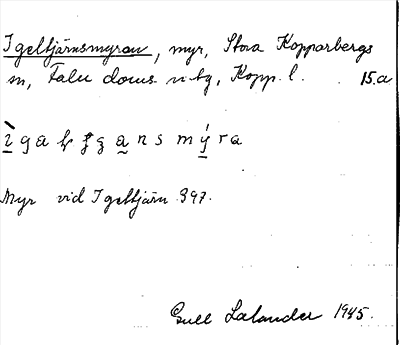 Igeltjärnsmyran, myr, Stora Kopparbergs
sn, Falu doms. n-tg, Kopp. l. 15.a
Myr vid Igeltjärn 397.
Gull Lalander 1945.